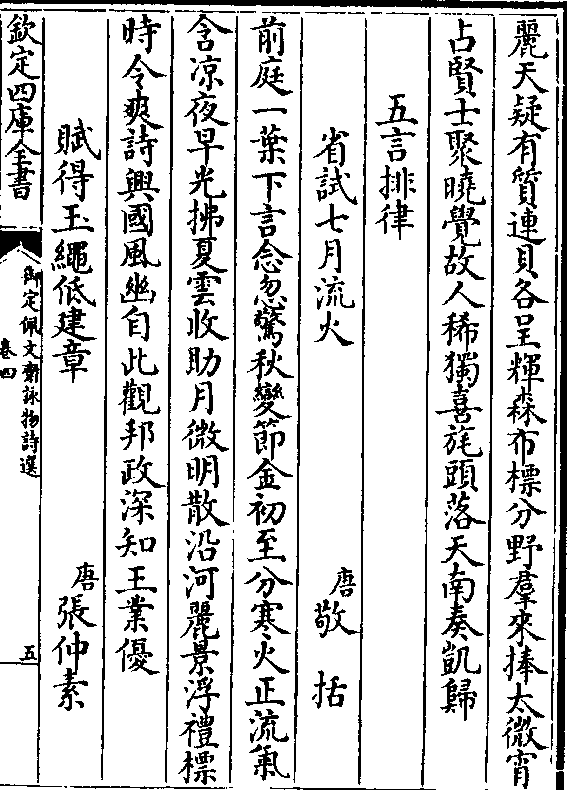 麗天疑有質連貝各呈輝森布標分野羣來捧太微宵
占賢士聚曉覺故人稀獨喜旄頭落天南奏凱歸
五言排律
省試七月流火
唐敬括
前庭一葉下言念忽驚秋變節金初至分寒火正流氣
含凉夜早光拂夏雲收助月微明散沿河麗景浮禮標
時令爽詩興國風幽自此觀邦政深知王業優
賦得玉繩低建章
唐張仲素
欽定四庫全書
御定佩文齋詠物詩選
卷四
五